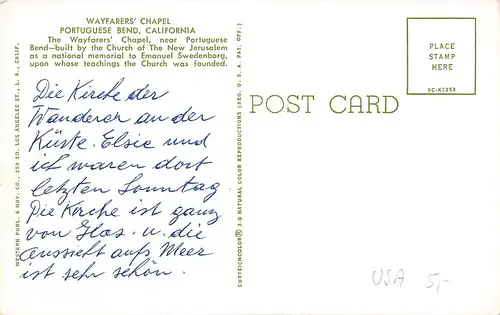 WAYFARERS' CHAPEL
PORTUGUESE BEND, CALIFORNIA
The Wayfarers' Chapel, near Portuguese
Bend—built by the Church of The New Jerusalem
as a national memorial to Emanuel Swedenborg,
upon whose teachings the Church was founded.
Die Kirche der
Wanderer an der
Küste. Elsie und
ich waren dort
letzten Sonntag.
Die Kirche ist ganz
von Glas. u. die
Aussicht aufs Meer
ist sehr schön.
WESTERN PUBL. & NOV. CO., 259 SO. LOS ANGELES ST., L. A., CALIF.
CURTEICHCOLOR® 3-D NATURAL COLOR REPRODUCTION (REG. U. S. A. PAT. OFF.)
POST CARD
PLACE
STAMP
HERE
9C-K1359
USA 5,-